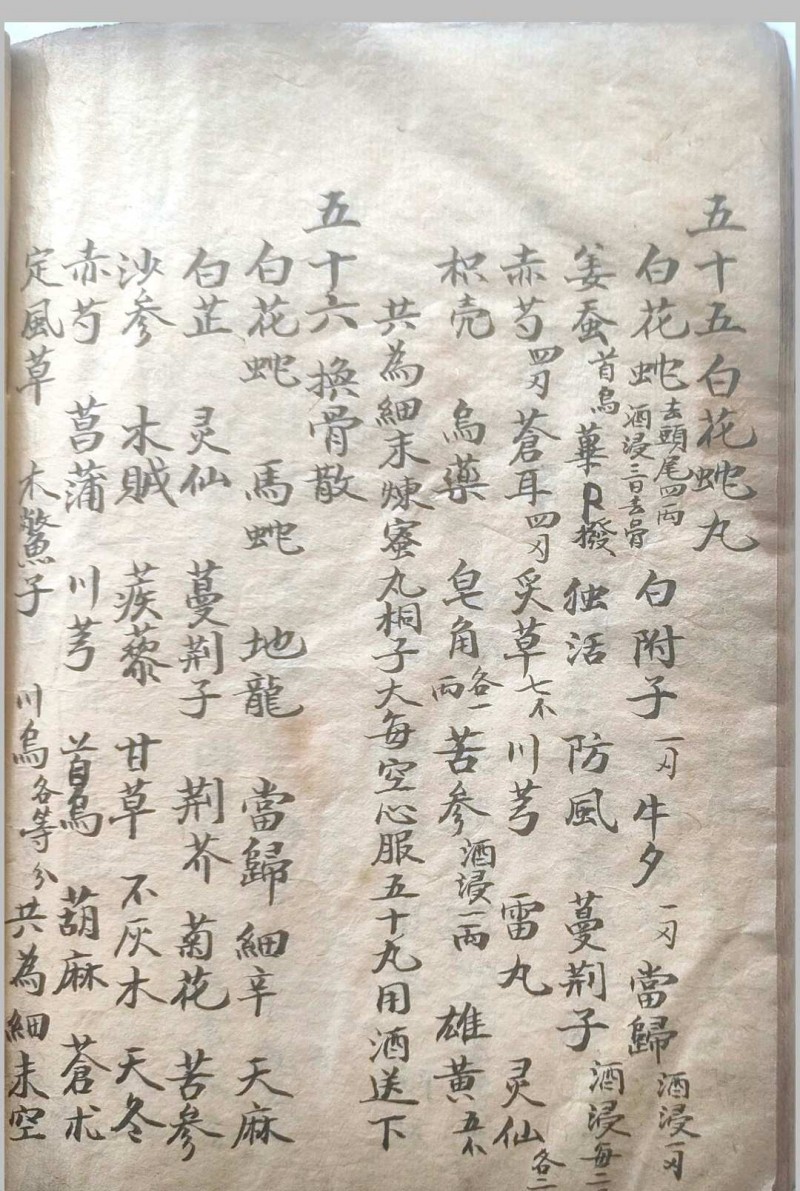 五十五白花蛇丸
白花蛇 去頭尾四両 酒浸三日去骨 白附子 一刃 牛夕 一刃 當歸 酒浸一刃
姜蚕 首烏 独活 防風 蔓荆子 酒浸每二
赤芍 四刃 蒼耳 四刃 炙草 川芎 雷丸 灵仙 各二
枳壳 烏藥 皂角 各一両 苦参 酒浸一両 雄黄
共為細末煉蜜丸桐子大每空心服五十丸用酒送下
五十六換骨散
白花蛇 馬蛇 地龍 當歸 細辛 天麻
白芷 灵仙 蔓荆子 荆芥 菊花 苦参
沙參 木賊 蒺藜 甘草 不灰木 天冬
赤芍 菖蒲 川芎 首烏 葫麻 蒼术
定風草 木鱉子 川烏 各等分 共為細末空